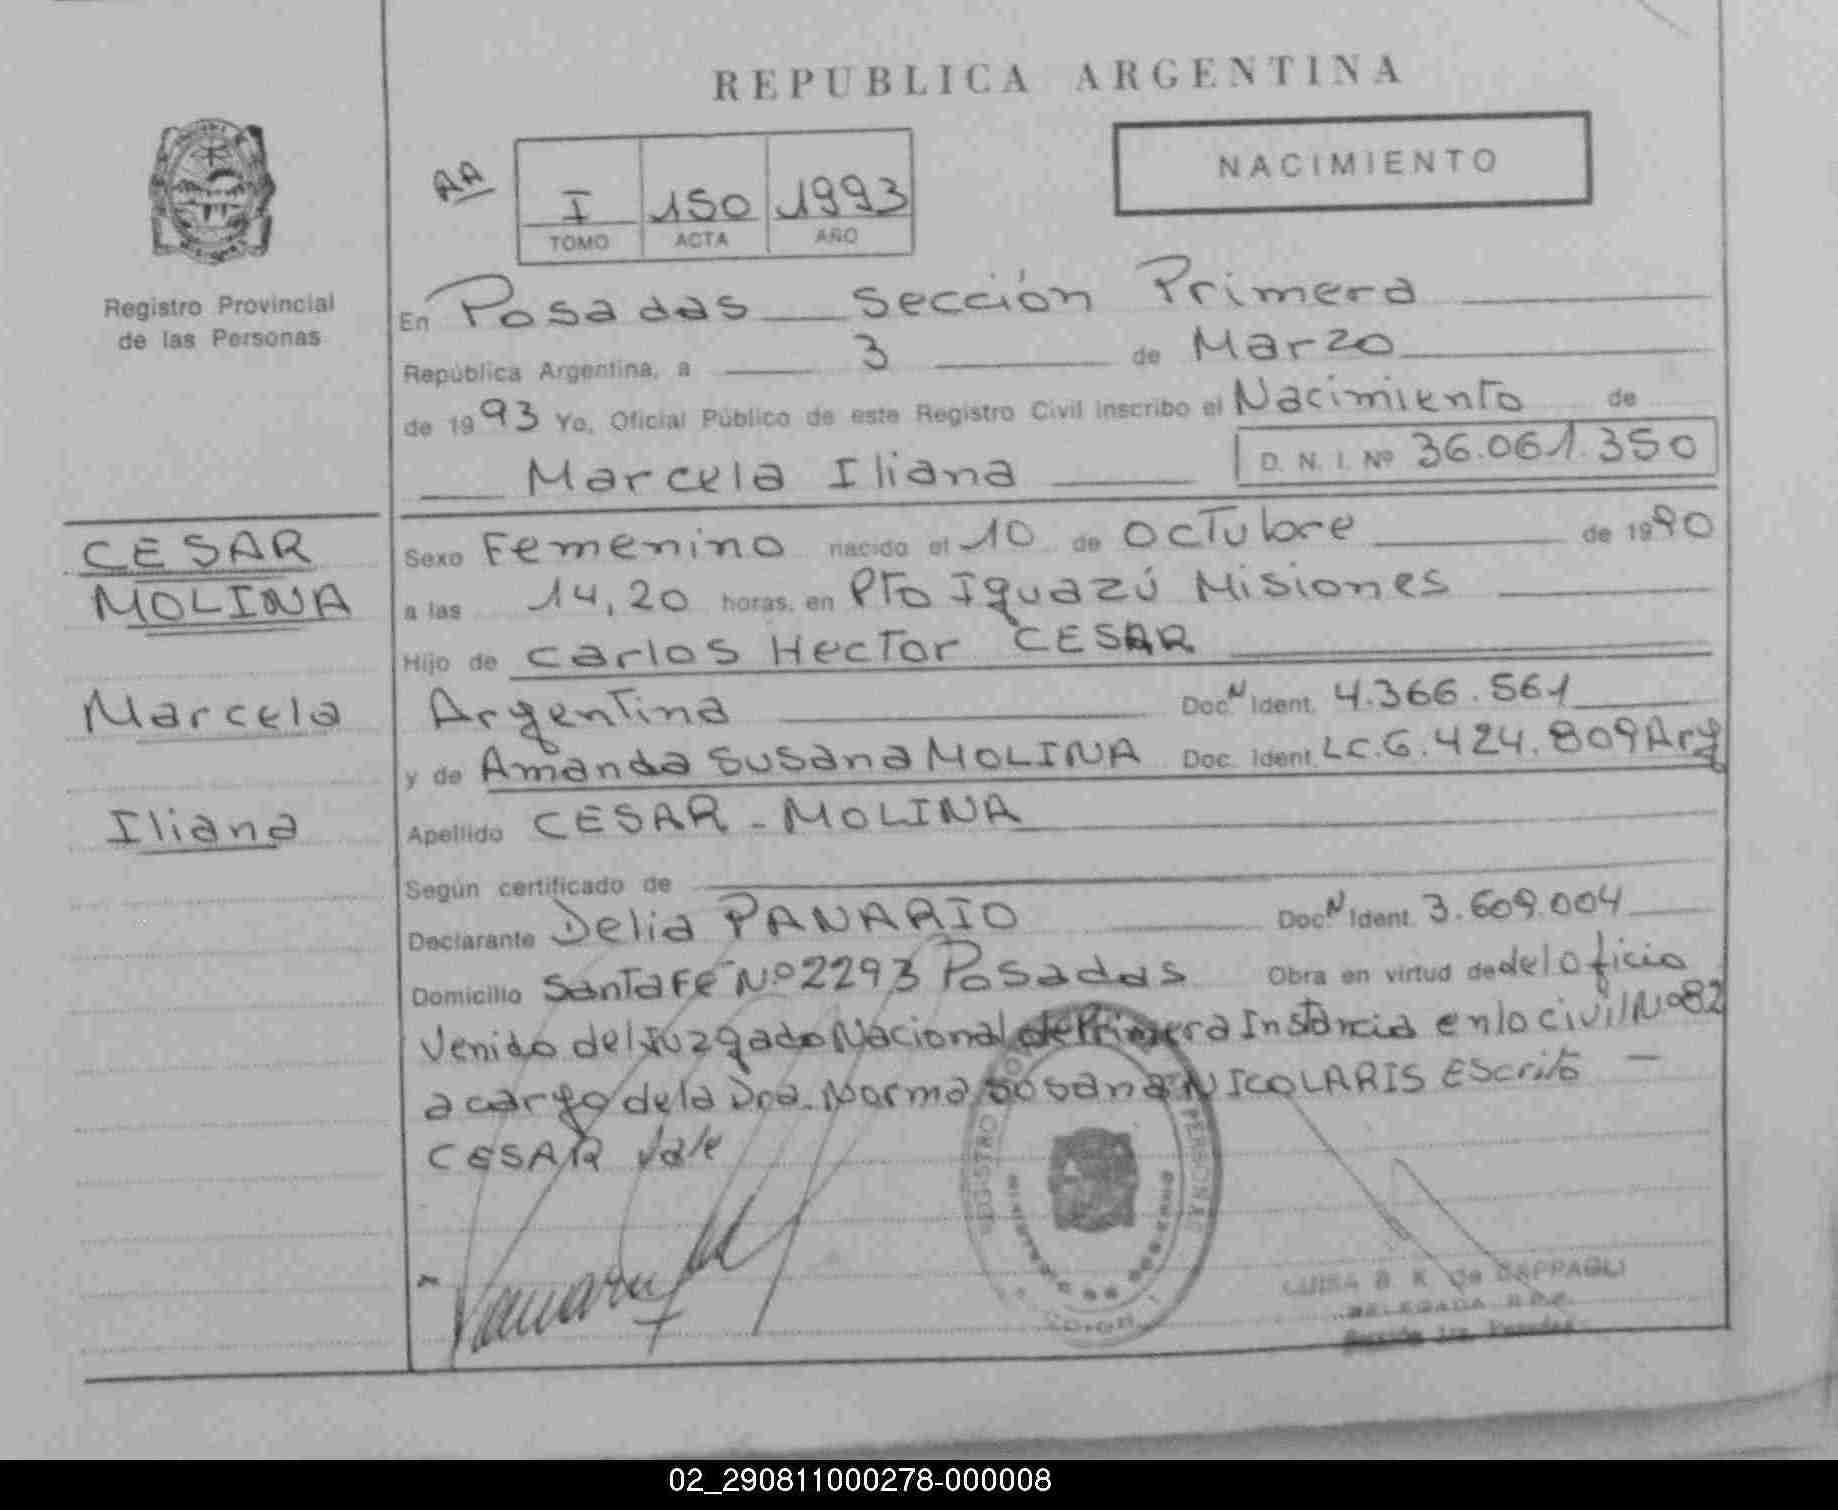 REPUBLICA ARGENTINA
NACIMIENTO
AA
I 150 1993
TOMO ACTA AÑO
Registro Provincial
de las Personas
En Posadas Sección Primera
República Argentina, a 3 de Marzo
de 1993 Yo, Oficial Público de este Registro Civil inscribo el Nacimiento de
Marcela Iliana D. N. I. Nº 36.061.350
CESAR
MOLINA
Marcela
Iliana
Sexo Femenino nacido el 10 de Octubre de 1990
a las 14,20 horas, en Pto Iguazú Misiones
Hijo de Carlos Hector CESAR
Argentina Doc. N Ident. 4.366.561
y de Amanda Susana MOLINA Doc. Ident. LC.6.424.809 Arg
Apellido CESAR - MOLINA
Según certificado de
Declarante Delia PANARIO Doc. N Ident. 3.609.004
Domicilio Santa Fe Nº 2293 Posadas Obra en virtud de del Oficio
Venido del Juzgado Nacional de Primera Instancia en lo civil Nº 82
a cargo de la Dra. Norma Susana NICOLARIS Escrito —
CESAR Vale
REGISTRO PERSONAS
LUISA B. K. de
DELEGADA R.P.P.
Sección 1ra. Posadas
02_290811000278-000008